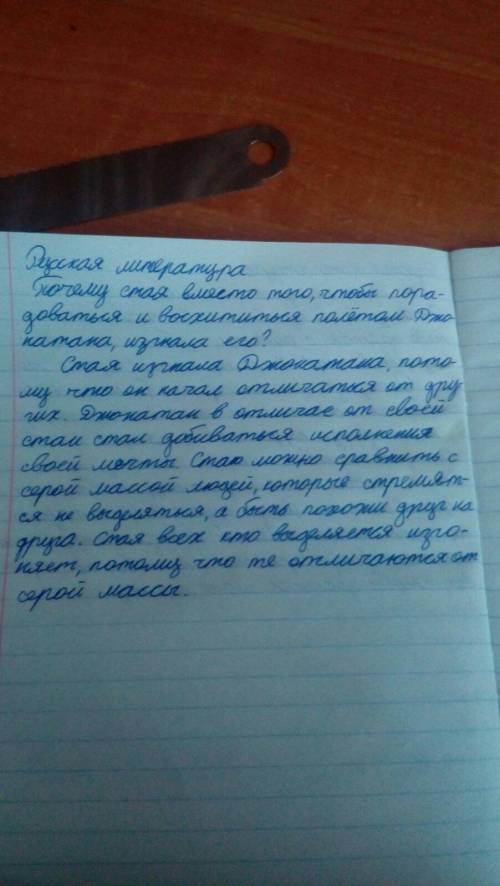 Русская литература
Почему стая вместо того, чтобы пора-
доваться и восхититься полётом Джо-
натана, изгнала его?
Стая изгнала Джонатана, пото-
му что он начал отличатся от дру-
гих. Джонатан в отличае от своей
стаи стал добиваться исполнения
своей мечты. Стаю можно сравнить с
серой массой людей, которые стремят-
ся не выделяться, а быть похожи друг на
друга. Стая всех кто выделяется изго-
няет, потому что те отличаются от
серой массы.